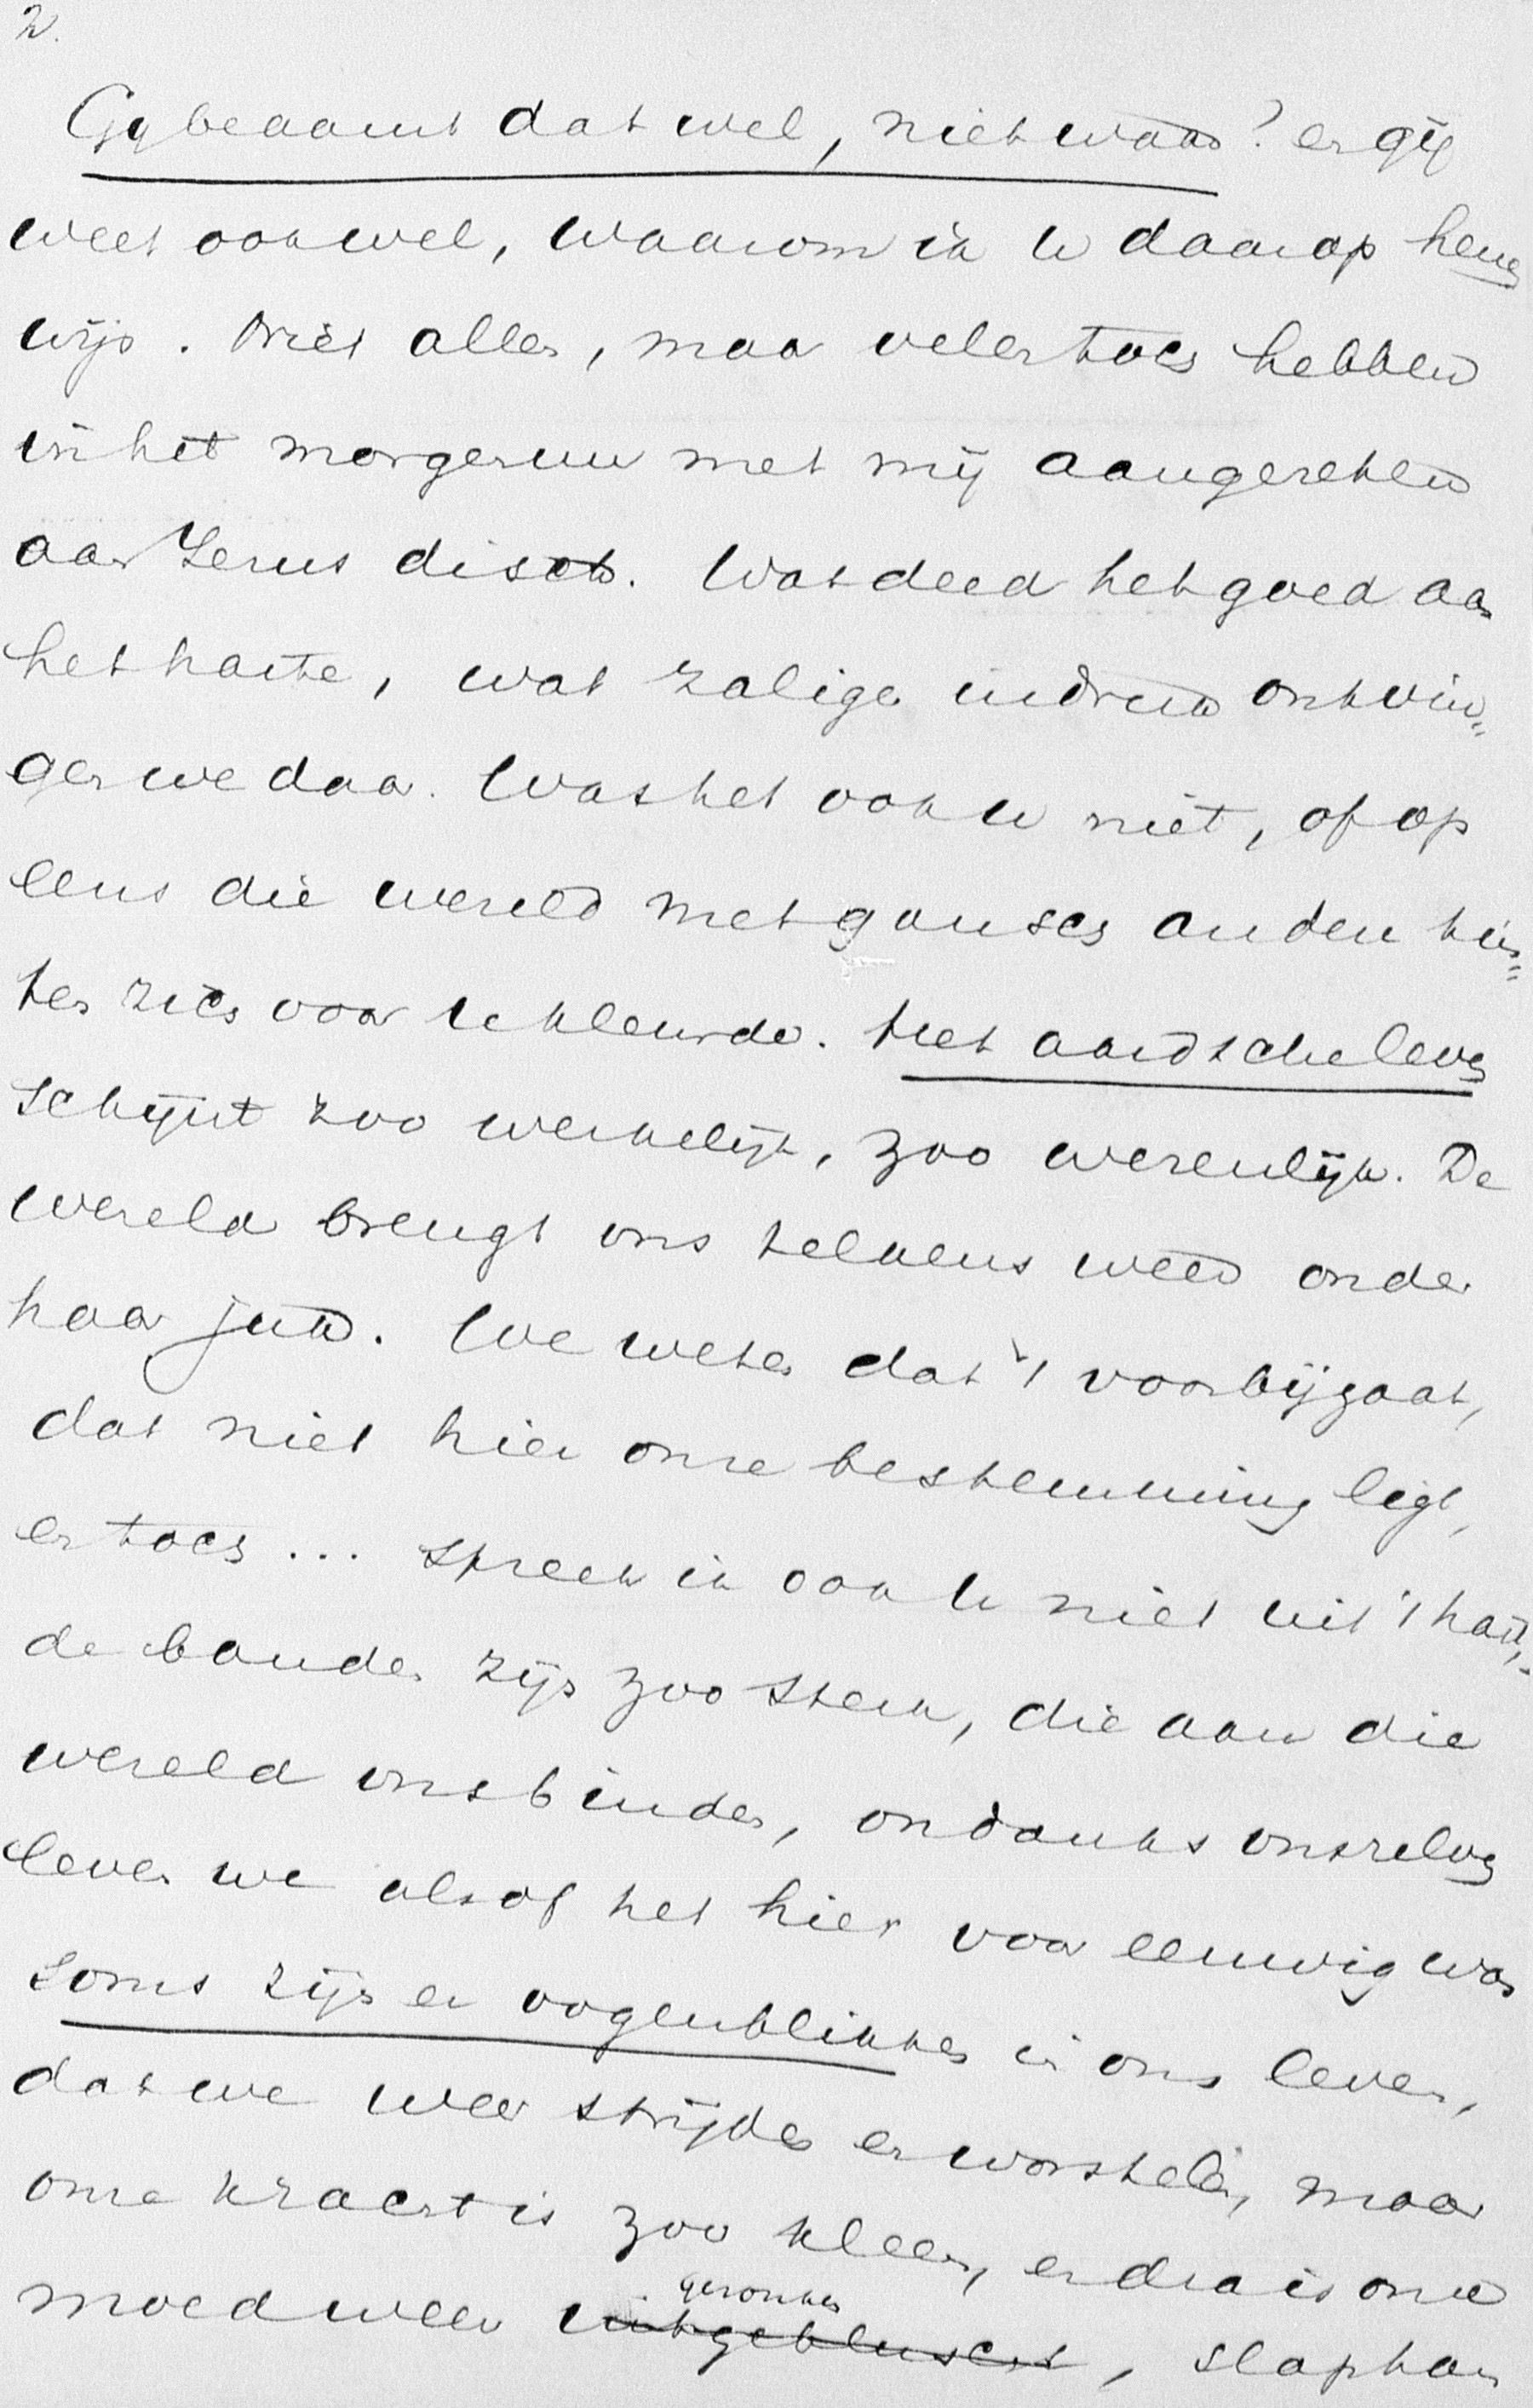 2.
Gij beaamt dat wel, niet waar? en gij
weet ook wel, waarom ik U daarop heen
wijs. Niet allen, maar velen toch hebben
in het morgenuur met mij aangezeten
aan Jezus disch. Wat deed het goed aan
het harte, wat zalige indruk ontvin„
gen we daar. Was het ook U niet, of op
eens die wereld met gansch andere tin„
ten zich voor U kleurde. Het aardsche leven
schijnt zoo werkelijk, zoo wezenlijk. De
wereld brengt ons telkens weer onder
haar juk. We weten dat 't voorbijgaat,
dat niet hier onze bestemming ligt,
en toch ... spreek ik ook U niet uit 't hart,
de banden zijn zoo sterk, die aan die
wereld ons binden, ondanks onszelven
leven we alsof het hier voor eeuwig was
Soms zijn er oogenblikken in ons leven,
dat we weer strijden en worstelen, maar
onze kracht is zoo kleen, en dra is onze
moed weer uitgebluscht gezonken, slaphan